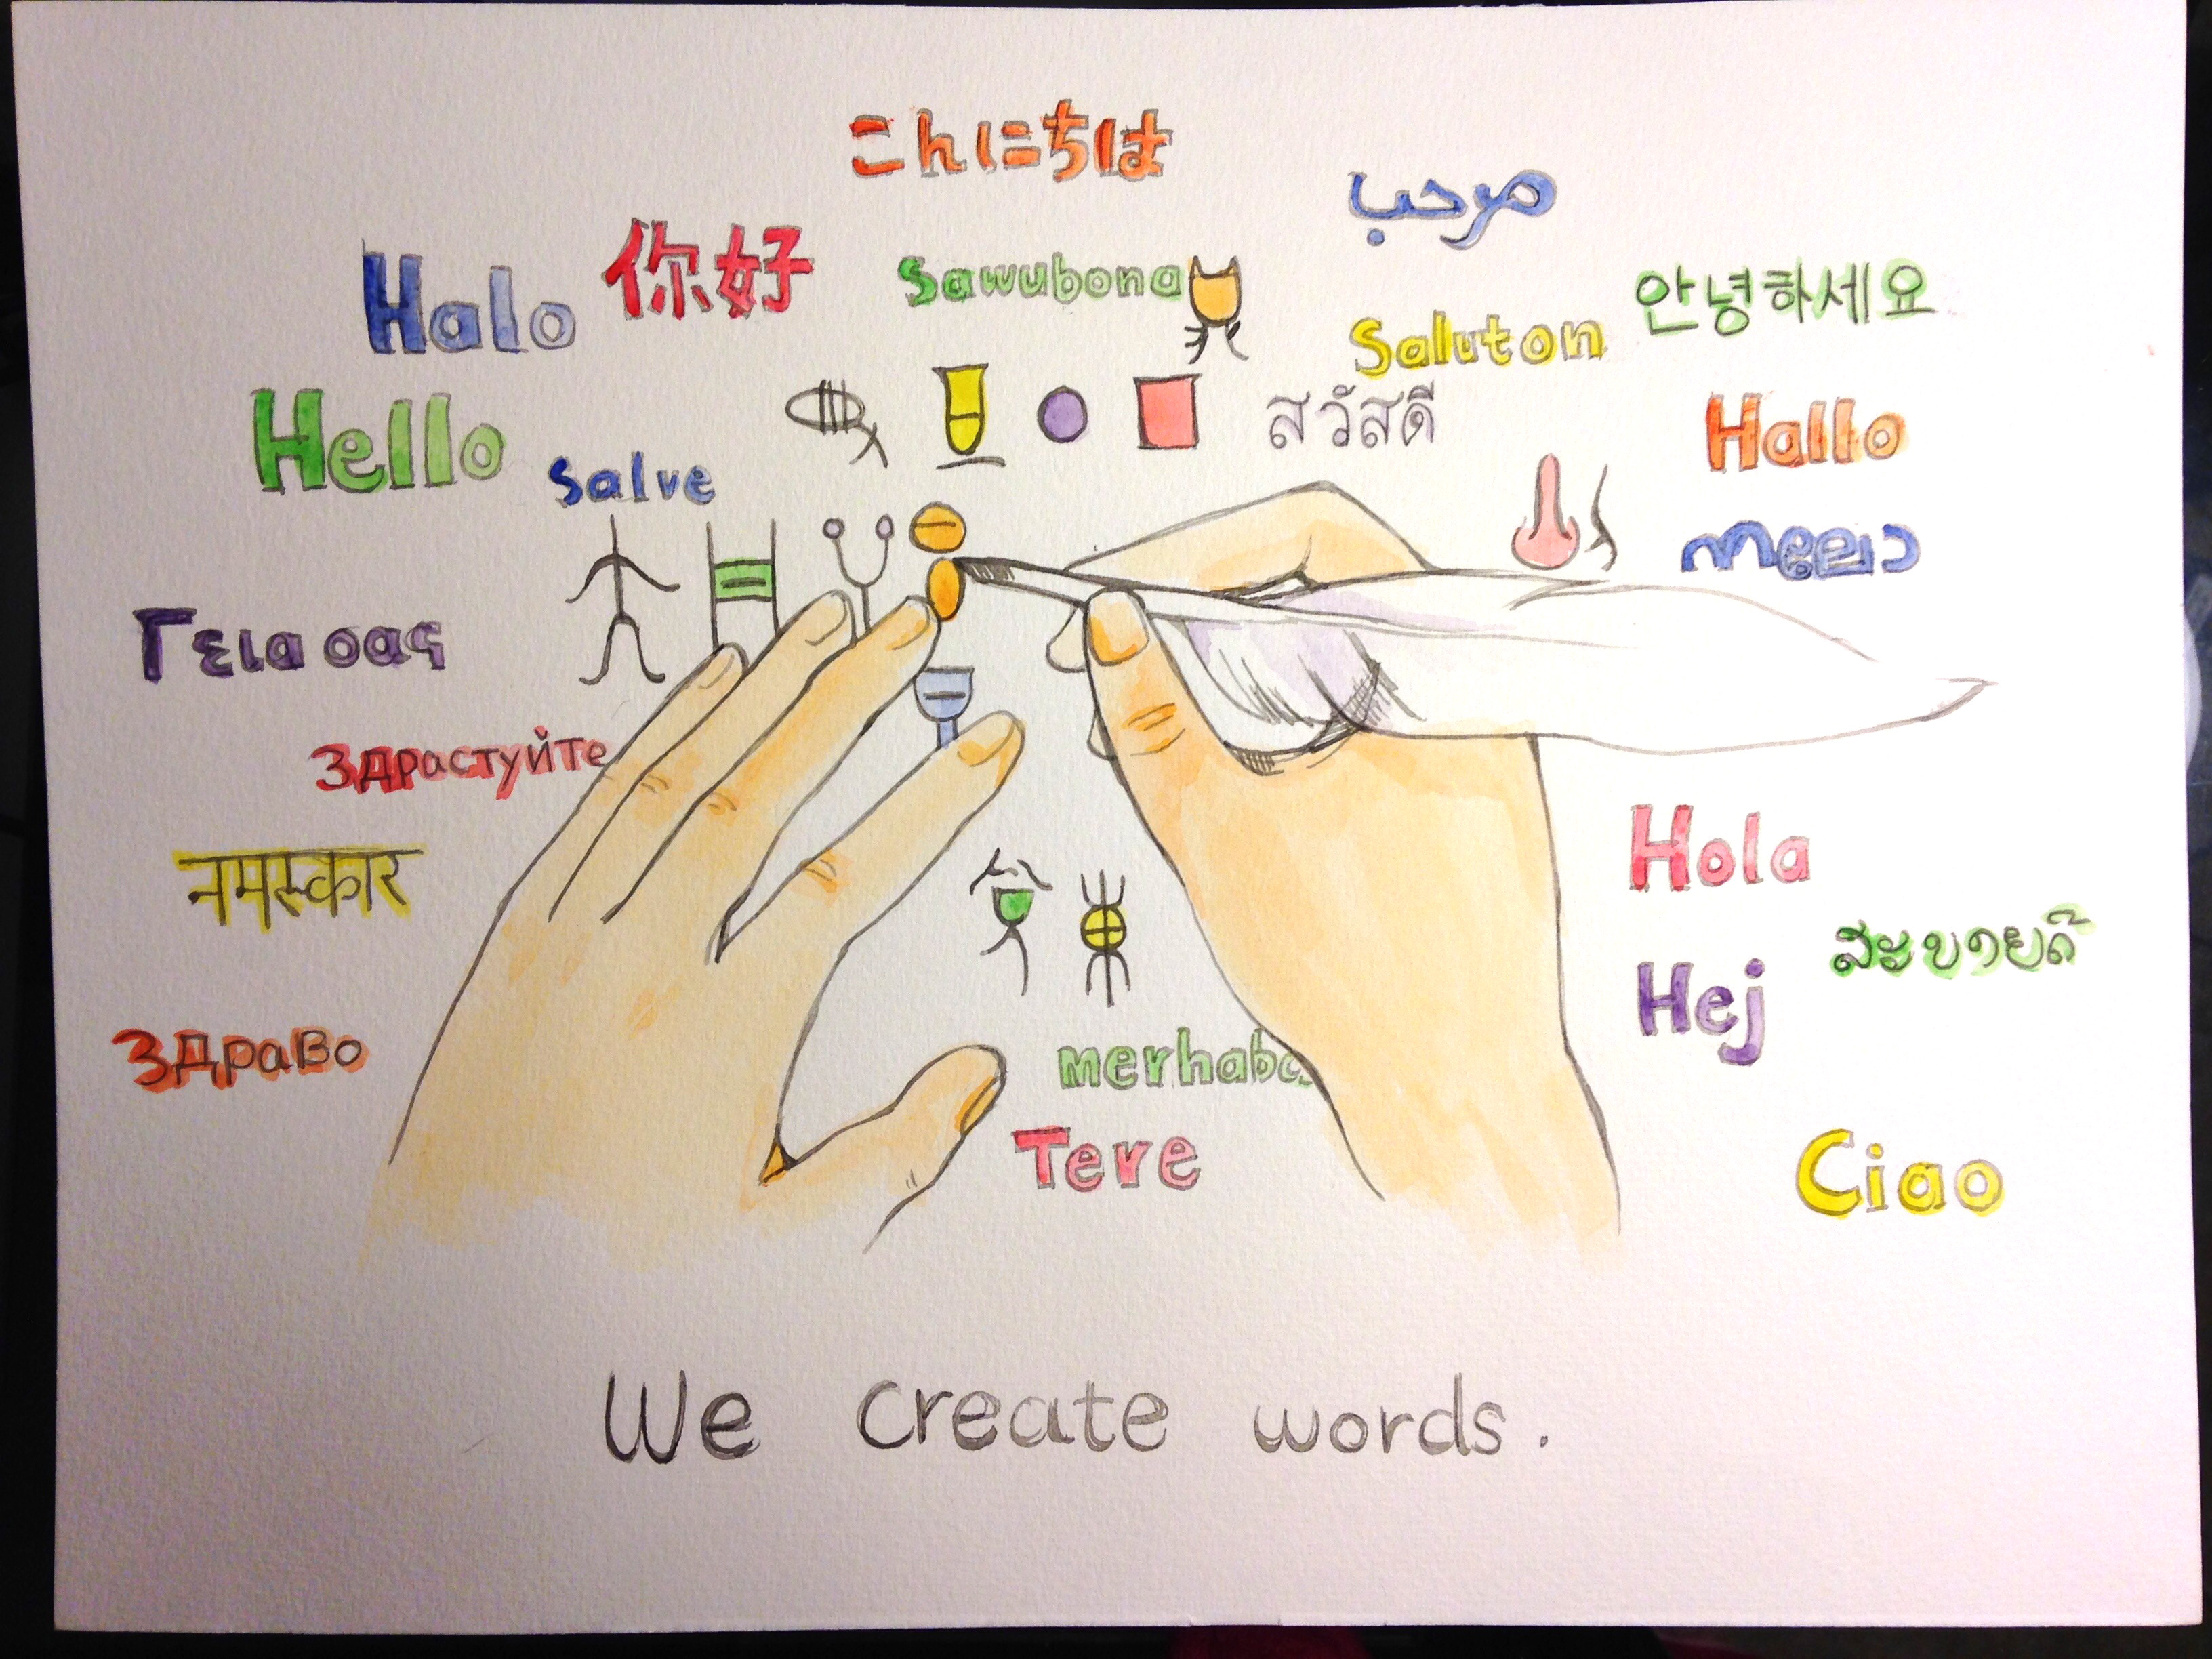 こんにちは
مرحب
Halo
你好
Sawubona
안녕하세요
Saluton
สวัสดี
Hallo
Hello
Salve
Γεια σας
Здрастуйте
नमस्कार
Hola
ສະບາຍດີ
Hej
Здраво
merhaba
Tere
Ciao
We create words.